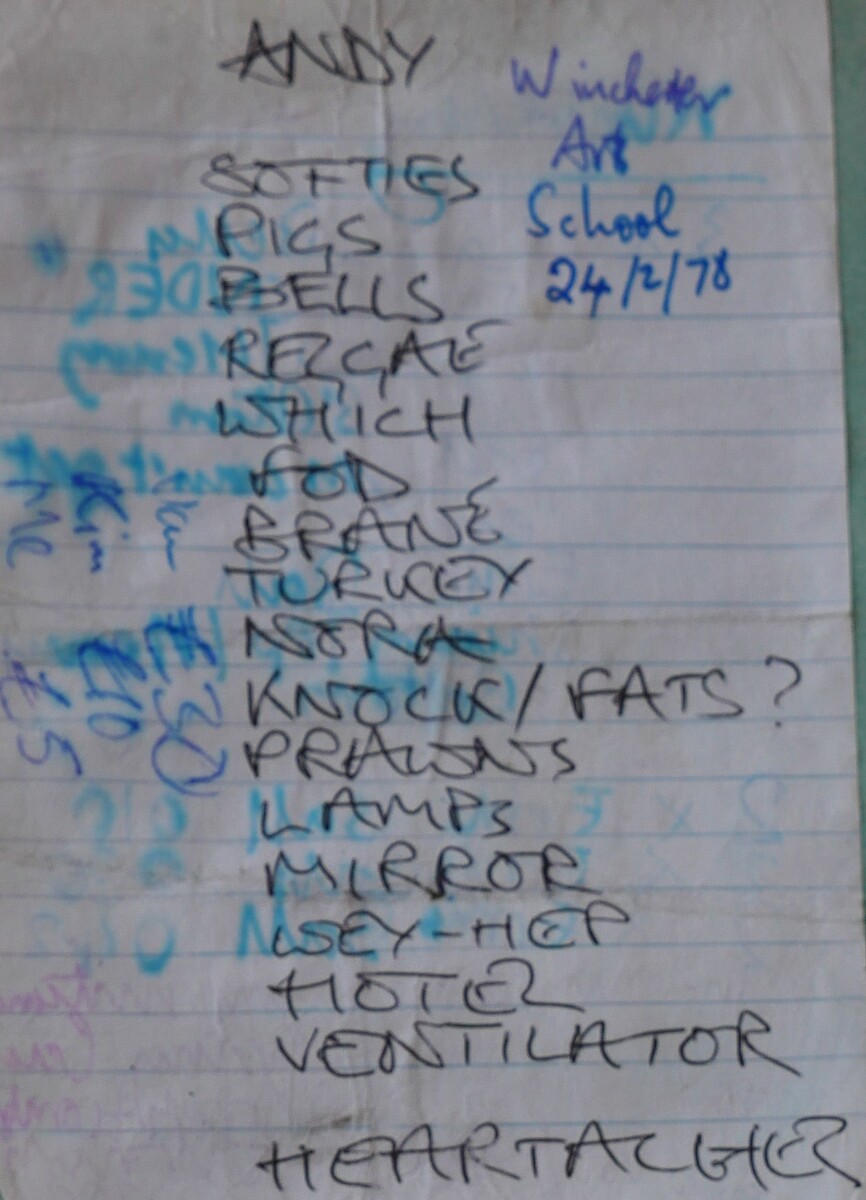 ANDY
Winchester
Art
School
24/2/78
SOFTIES
PIGS
BELLS
REGGAE
WHICH
FOD
BRANE
TURKEY
NORA
KNOCK/FATS?
PRAWNS
LAMPS
MIRROR
WEY-HEP
HOTEL
VENTILATOR
HEARTACHE
£30
Kim £10
Me £5